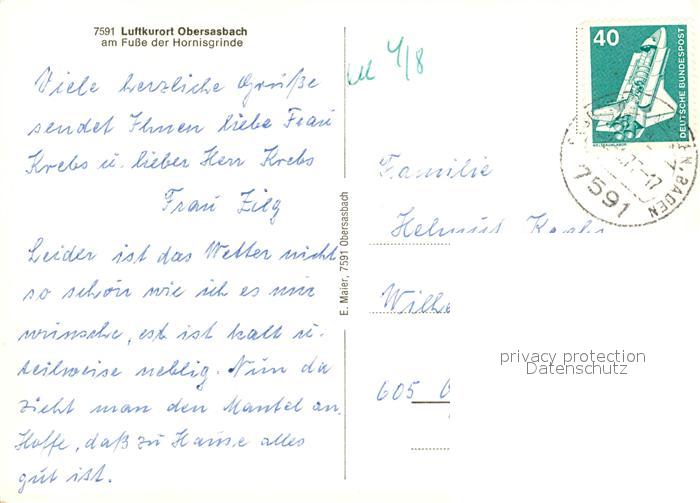 7591 Luftkurort Obersasbach
am Fuße der Hornisgrinde
Viele herzliche Grüße
sendet Ihnen liebe Frau
Krebs u. lieber Herr Krebs
Frau Zilg
Leider ist das Wetter nicht
so schön wie ich es mir
wünsche, est ist kalt u.
teilweise neblig. Nun da
zieht man den Mantel an.
Hoffe, daß zu Hause alles
gut ist.
E. Maier, 7591 Obersasbach
4/8
40
DEUTSCHE BUNDESPOST
7591
BADEN
Familie
Helmut
Wilhe
605
privacy protection
Datenschutz